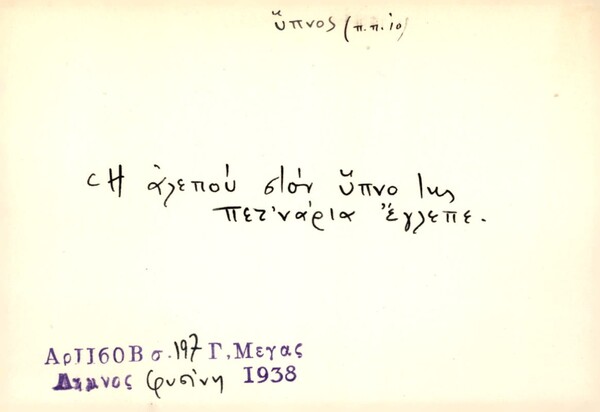 ὕπνος (π.π. 10)
Ἡ ἀλεποὺ στὸν ὕπνο της
πετ'νάρια ἔγλεπε.
Αρ 1160 Β σ. 197 Γ. Μεγας
Λημνος Φυσίνη 1938